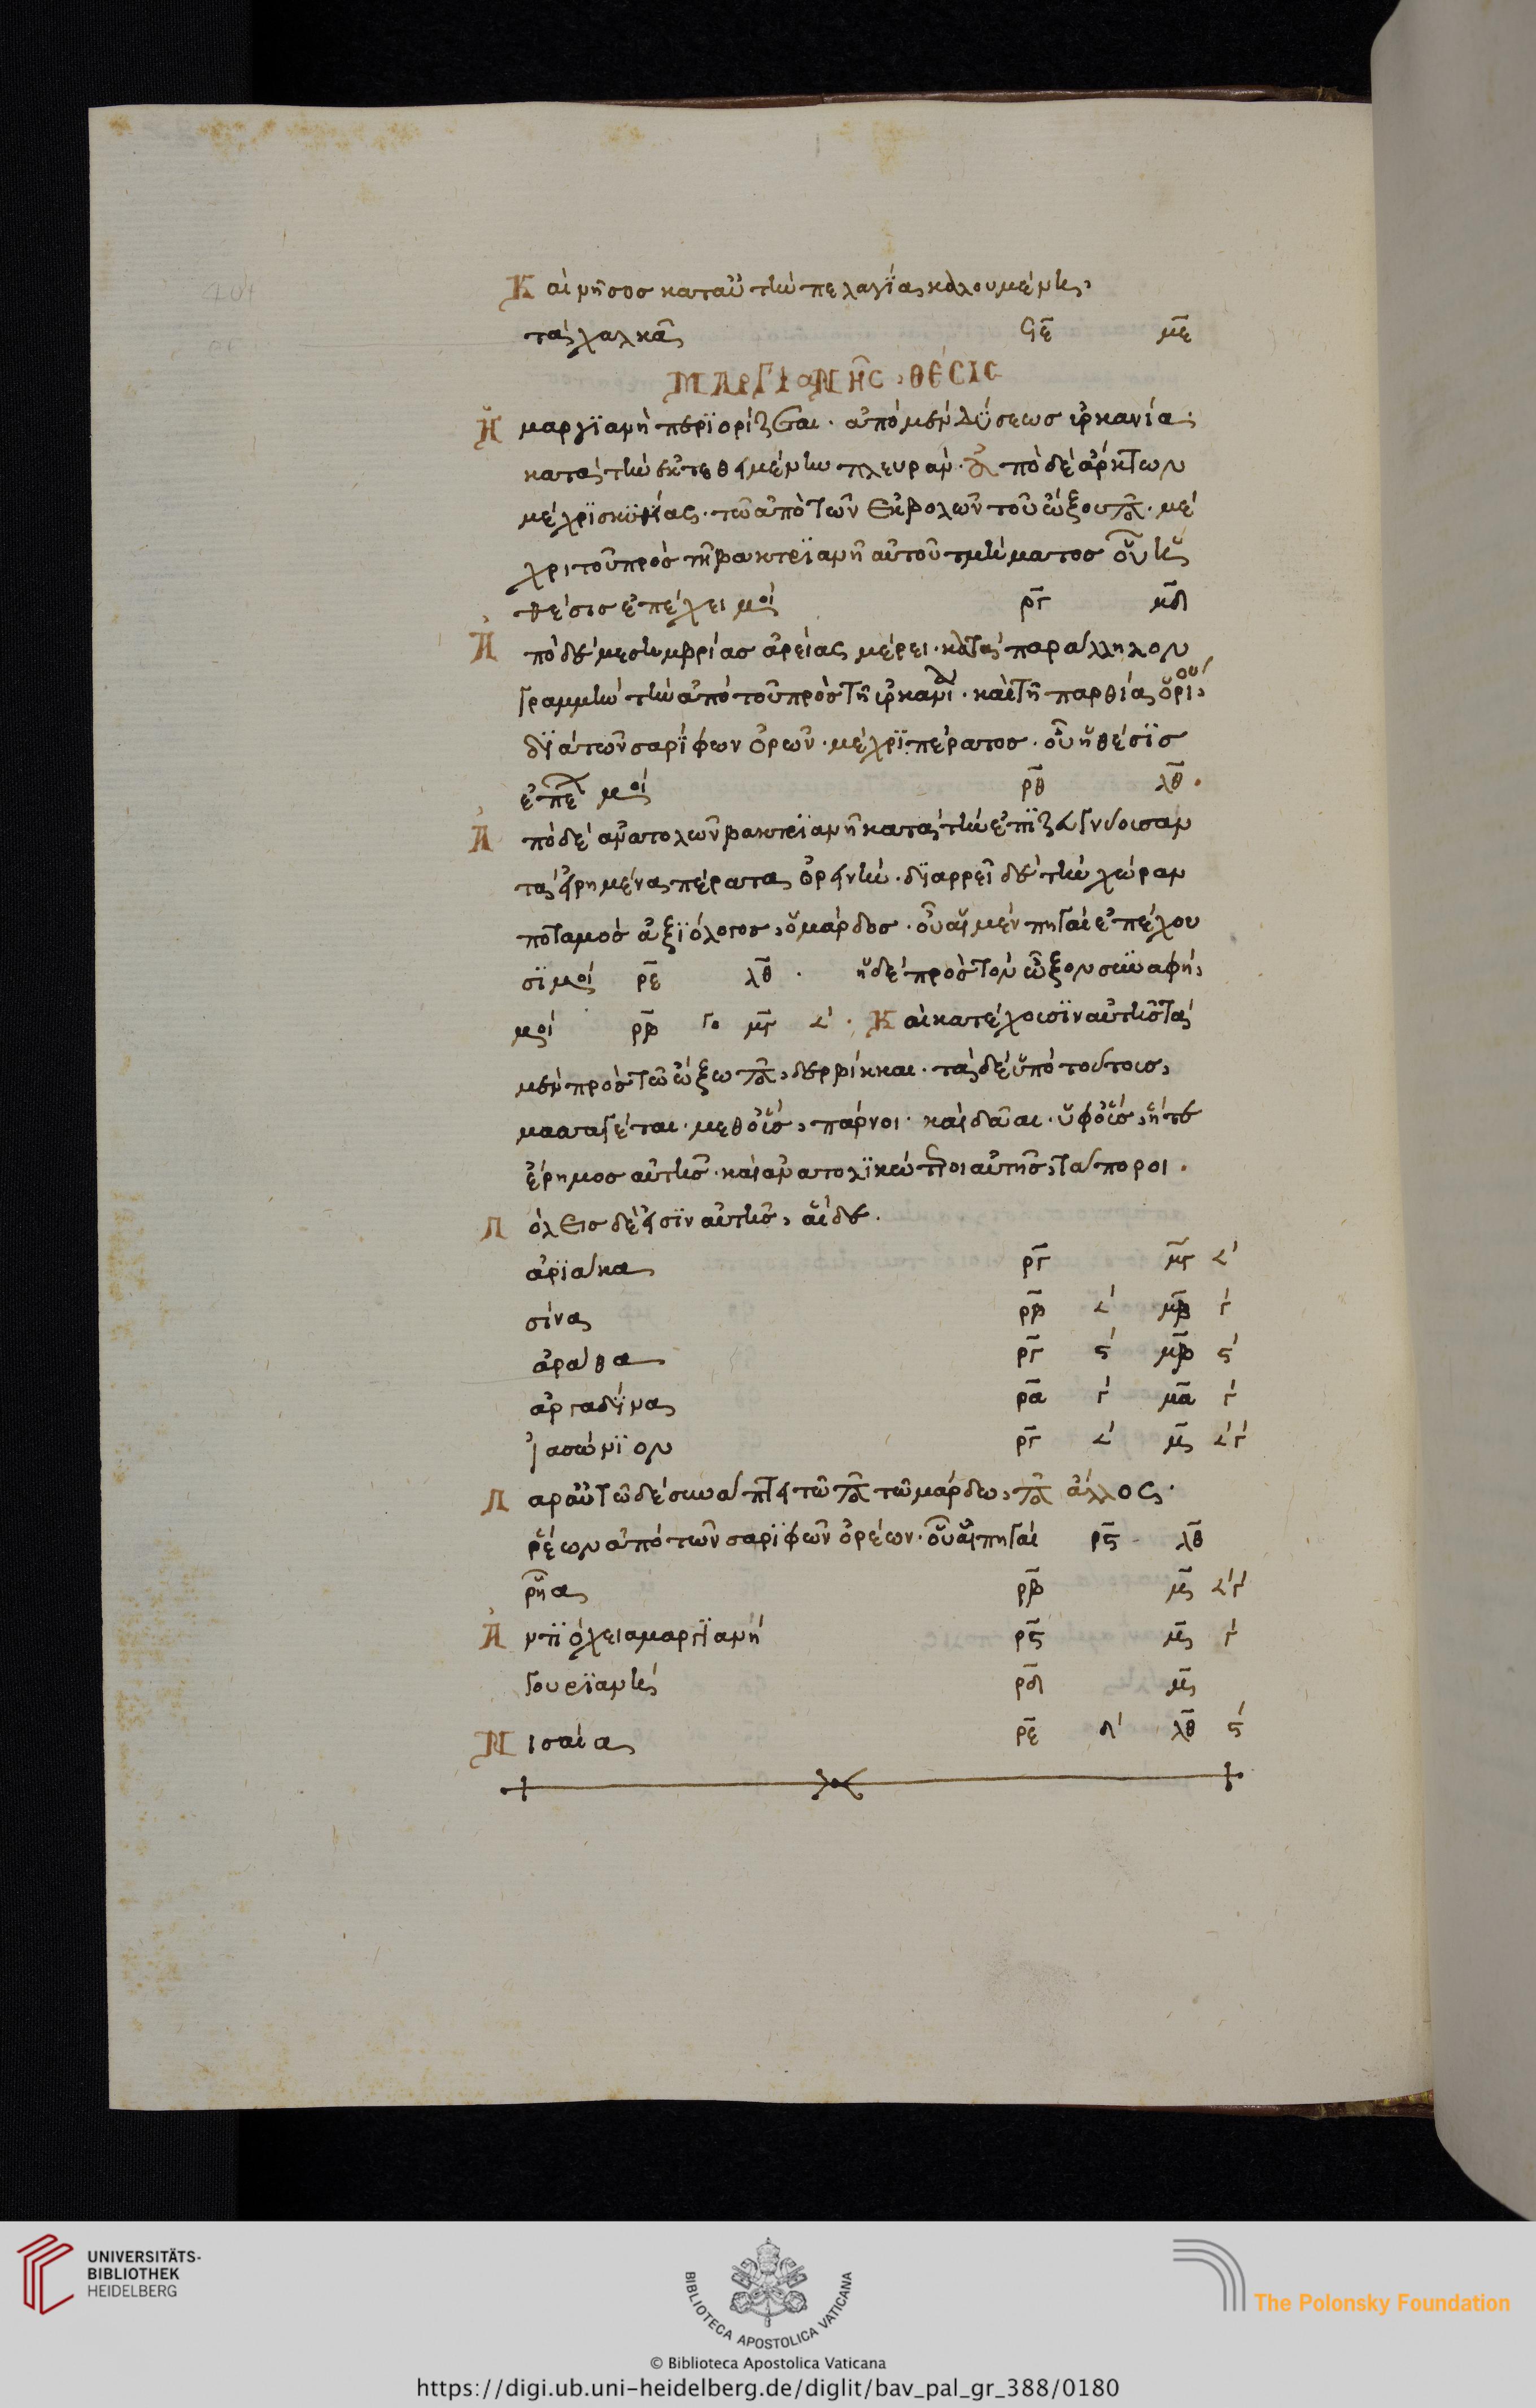 Καὶ νῆσος κατ' αὐτὴν πελαγία καλουμένη,
ταλκα ϟε με
ΜΑΡΓΙΑΝΗ͂C ΘΈCΙC
Ἡ μαργιανὴ περιορίζεται· ἀπὸ μὲν δύσεως ὑρκανία
κατὰ τὴν ἐκτεθειμένην πλευράν· Ἀπὸ δὲ ἄρκτων
μέχρι σκυθίας· τῶ ἀπὸ τῶν ἐκβολῶν τοῦ ὤξου ποταμοῦ· μέ
χρι τοῦ πρὸς τῆ βακτριανῆ αὐτοῦ τμήματος οὗ ἡ
θέσις ἐπέχει μοί ργ μδ
Ἀπὸ δὲ μεσημβρίας ἀρείας μέρει· κατὰ παράλληλον
γραμμὴν τὴν ἀπὸ τοῦ πρὸς τῆ ὑρκανι· καὶ τῆ παρθία ὁρίου
διὰ τῶν σαρίφων ὀρῶν· μέχρι πέρατος· οὗ ἡ θέσις
ἐπεχ μοί ρθ λθ·
Ἀπὸ δὲ ἀνατολῶν βακτριανῆ κατὰ τὴν ἐπιζευγνύουσαν
τὰ εἰρημένα πέρατα ὀρεινήν· διαρρεῖ δὲ τὴν χώραν
ποταμὸς ἀξιόλογος, ὁ μάρδος· οὗ αἱ μὲν πηγαὶ ἐπέχου
σι μοί ρε λθ· ἡ δὲ πρὸς τὸν ὦξον συναφή,
μοί ρβ γο μγ ∠´· Καὶ κατέχουσιν αὐτῆς τὰ
μὲν πρὸς τῶ ὤξω ποταμῶ, δερβίκκαι· τὰ δὲ ὑπὸ τούτοις,
μασαγέται· μεθ' οὓς, πάρνοι· καὶ δᾶαι· ὑφ' οὓς, ἥ τε
ἔρημος αὐτῆς· καὶ ἀνατολικώτεροι αὐτῆς, τάποροι·
Πόλεις δέ εἰσιν αὐτῆς, αἵδε·
ἀριάκα ργ μγ ∠´
σίνα ρβ ∠´ μβ γ´
ἀράθα ργ ϛ´ μβ ϛ´
ἀργαδίνα ρα γ´ μα γ´
ἰασώνιον ργ ∠´ μ ∠´γ´
Παρ' αὐτῶ δὲ συνάπτει τῶ ποταμῶ τῶ μάρδω, ποταμὸς ἄλλος·
ῥέων ἀπὸ τῶν σαρίφων ὀρέων· οὗ αἱ πηγαὶ ρϛ λθ
ῥῆα ρβ μ ∠´γ´
Ἀντιόχεια μαργιανή ρϛ μ γ´
γουριανή ρδ μ
Νισαία ρε δ´ λθ ϛ´
UNIVERSITÄTS-
BIBLIOTHEK
HEIDELBERG
BIBLIOTECA APOSTOLICA VATICANA
The Polonsky Foundation
© Biblioteca Apostolica Vaticana
https://digi.ub.uni-heidelberg.de/diglit/bav_pal_gr_388/0180